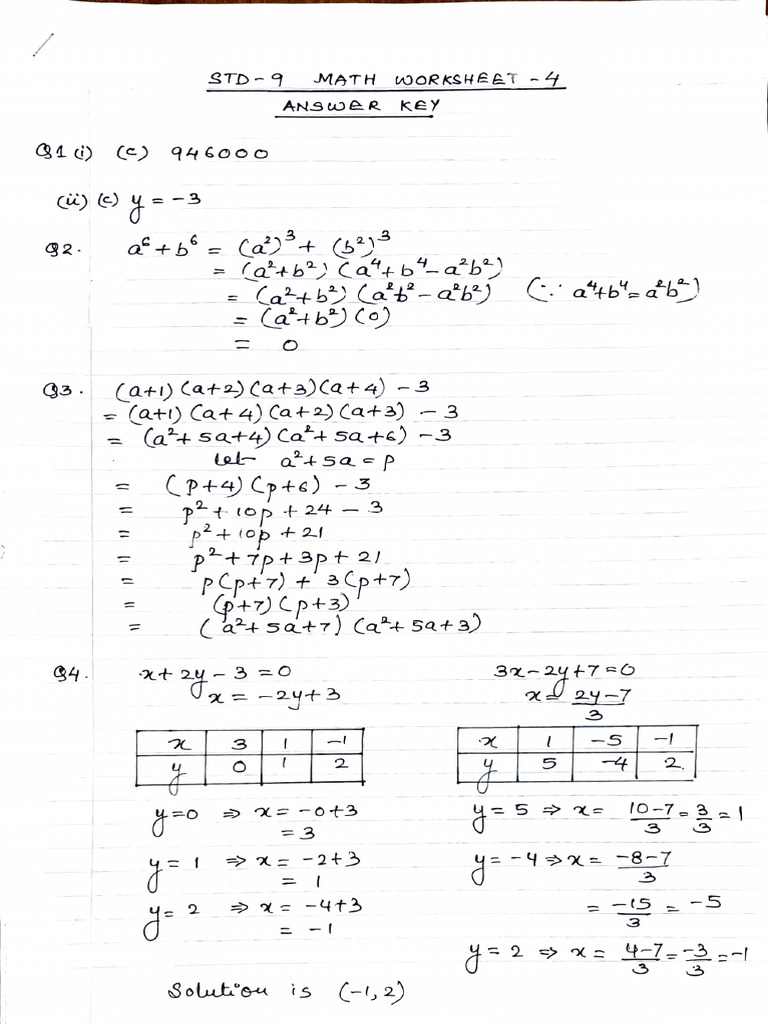 STD-9 MATH WORKSHEET-4
ANSWER KEY
Q1 (i) (c) 946000
(ii) (c) y = -3
Q2. a⁶ + b⁶ = (a²)³ + (b²)³
= (a²+b²) (a⁴+b⁴-a²b²)
= (a²+b²) (a²b²-a²b²) (∵ a⁴+b⁴=a²b²)
= (a²+b²) (0)
= 0
Q3. (a+1) (a+2) (a+3) (a+4) - 3
= (a+1) (a+4) (a+2) (a+3) - 3
= (a²+5a+4) (a²+5a+6) - 3
let a²+5a = p
= (p+4) (p+6) - 3
= p² + 10p + 24 - 3
= p² + 10p + 21
= p² + 7p + 3p + 21
= p(p+7) + 3(p+7)
= (p+7) (p+3)
= (a²+5a+7) (a²+5a+3)
Q4. x + 2y - 3 = 0
x = -2y+3
x 3 1 -1
y 0 1 2
y=0 ⇒ x = -0+3
= 3
y = 1 ⇒ x = -2+3
= 1
y = 2 ⇒ x = -4+3
= -1
3x-2y+7=0
x = 2y-7/3
x 1 -5 -1
y 5 -4 2.
y = 5 ⇒ x = 10-7/3 = 3/3 = 1
y = -4 ⇒ x = -8-7/3
= -15/3 = -5
y = 2 ⇒ x = 4-7/3 = -3/3 = -1
Solution is (-1, 2)